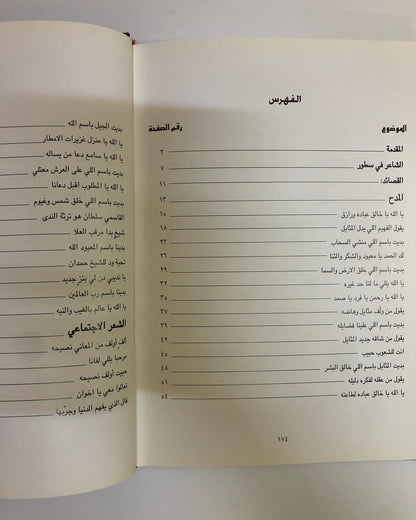 الفهرس
الموضوع رقم الصفحة
المقدمة ٣
الشاعر في سطور ٧
القصائد: ١١
المدح ١٣
يا الله يا خالق عباده ورازق ١٥
يقول الفهيم اللي يدل المثايل ١٨
بديت باسم اللي منشي السحاب ٢١
لك الحمد يا معبود والشكر والثنا ٢٥
بديت باسم اللي خلق الارض والسما ٢٩
يا الله ياللي ما لنا حد غيره ٣٢
يا الله يا رحمن يا فرد يا صمد ٣٥
يقول من ولّف مثايل وهاضه ٣٨
بديت باسم اللي علينا فضايله ٣٩
يقول من شاقه جديد المثايل ٤٠
انت للشعوب حبيب ٤٥
بديت المثايل باسم اللي خالق البشر ٤٨
يقول من عقله لفكره دليله ٥١
يا الله يا خالق عباده لطاعته ٥٤
١٧٤
بديت الجيل باسم الله
يا الله يا منزل غزيرات الامطار
يا الله يا سامع دعا من يساله
بديت باسم اللي على العرش معتلي
يا الله يا المطلوب اقبل دعانا
بديت باسم اللي خلق شمس وغيوم
القاسمي سلطان هو ترثة الندى
شيخ بدا مرقب العلا
بدينا باسم المعبود الله
تحية ود للشيخ حمدان
يا نديبي دن لي بنز جديد
بدينا باسم رب العالمين
يا الله يا عالم بالغيب والنيه
الشعر الاجتماعي
ألف أولف من المعاني نصيحه
مرحبا ياللي لفانا
حبيت أولف نصيحه
تعالوا معي يا اخوان
قال الذي يفهم الدنيا وجربها